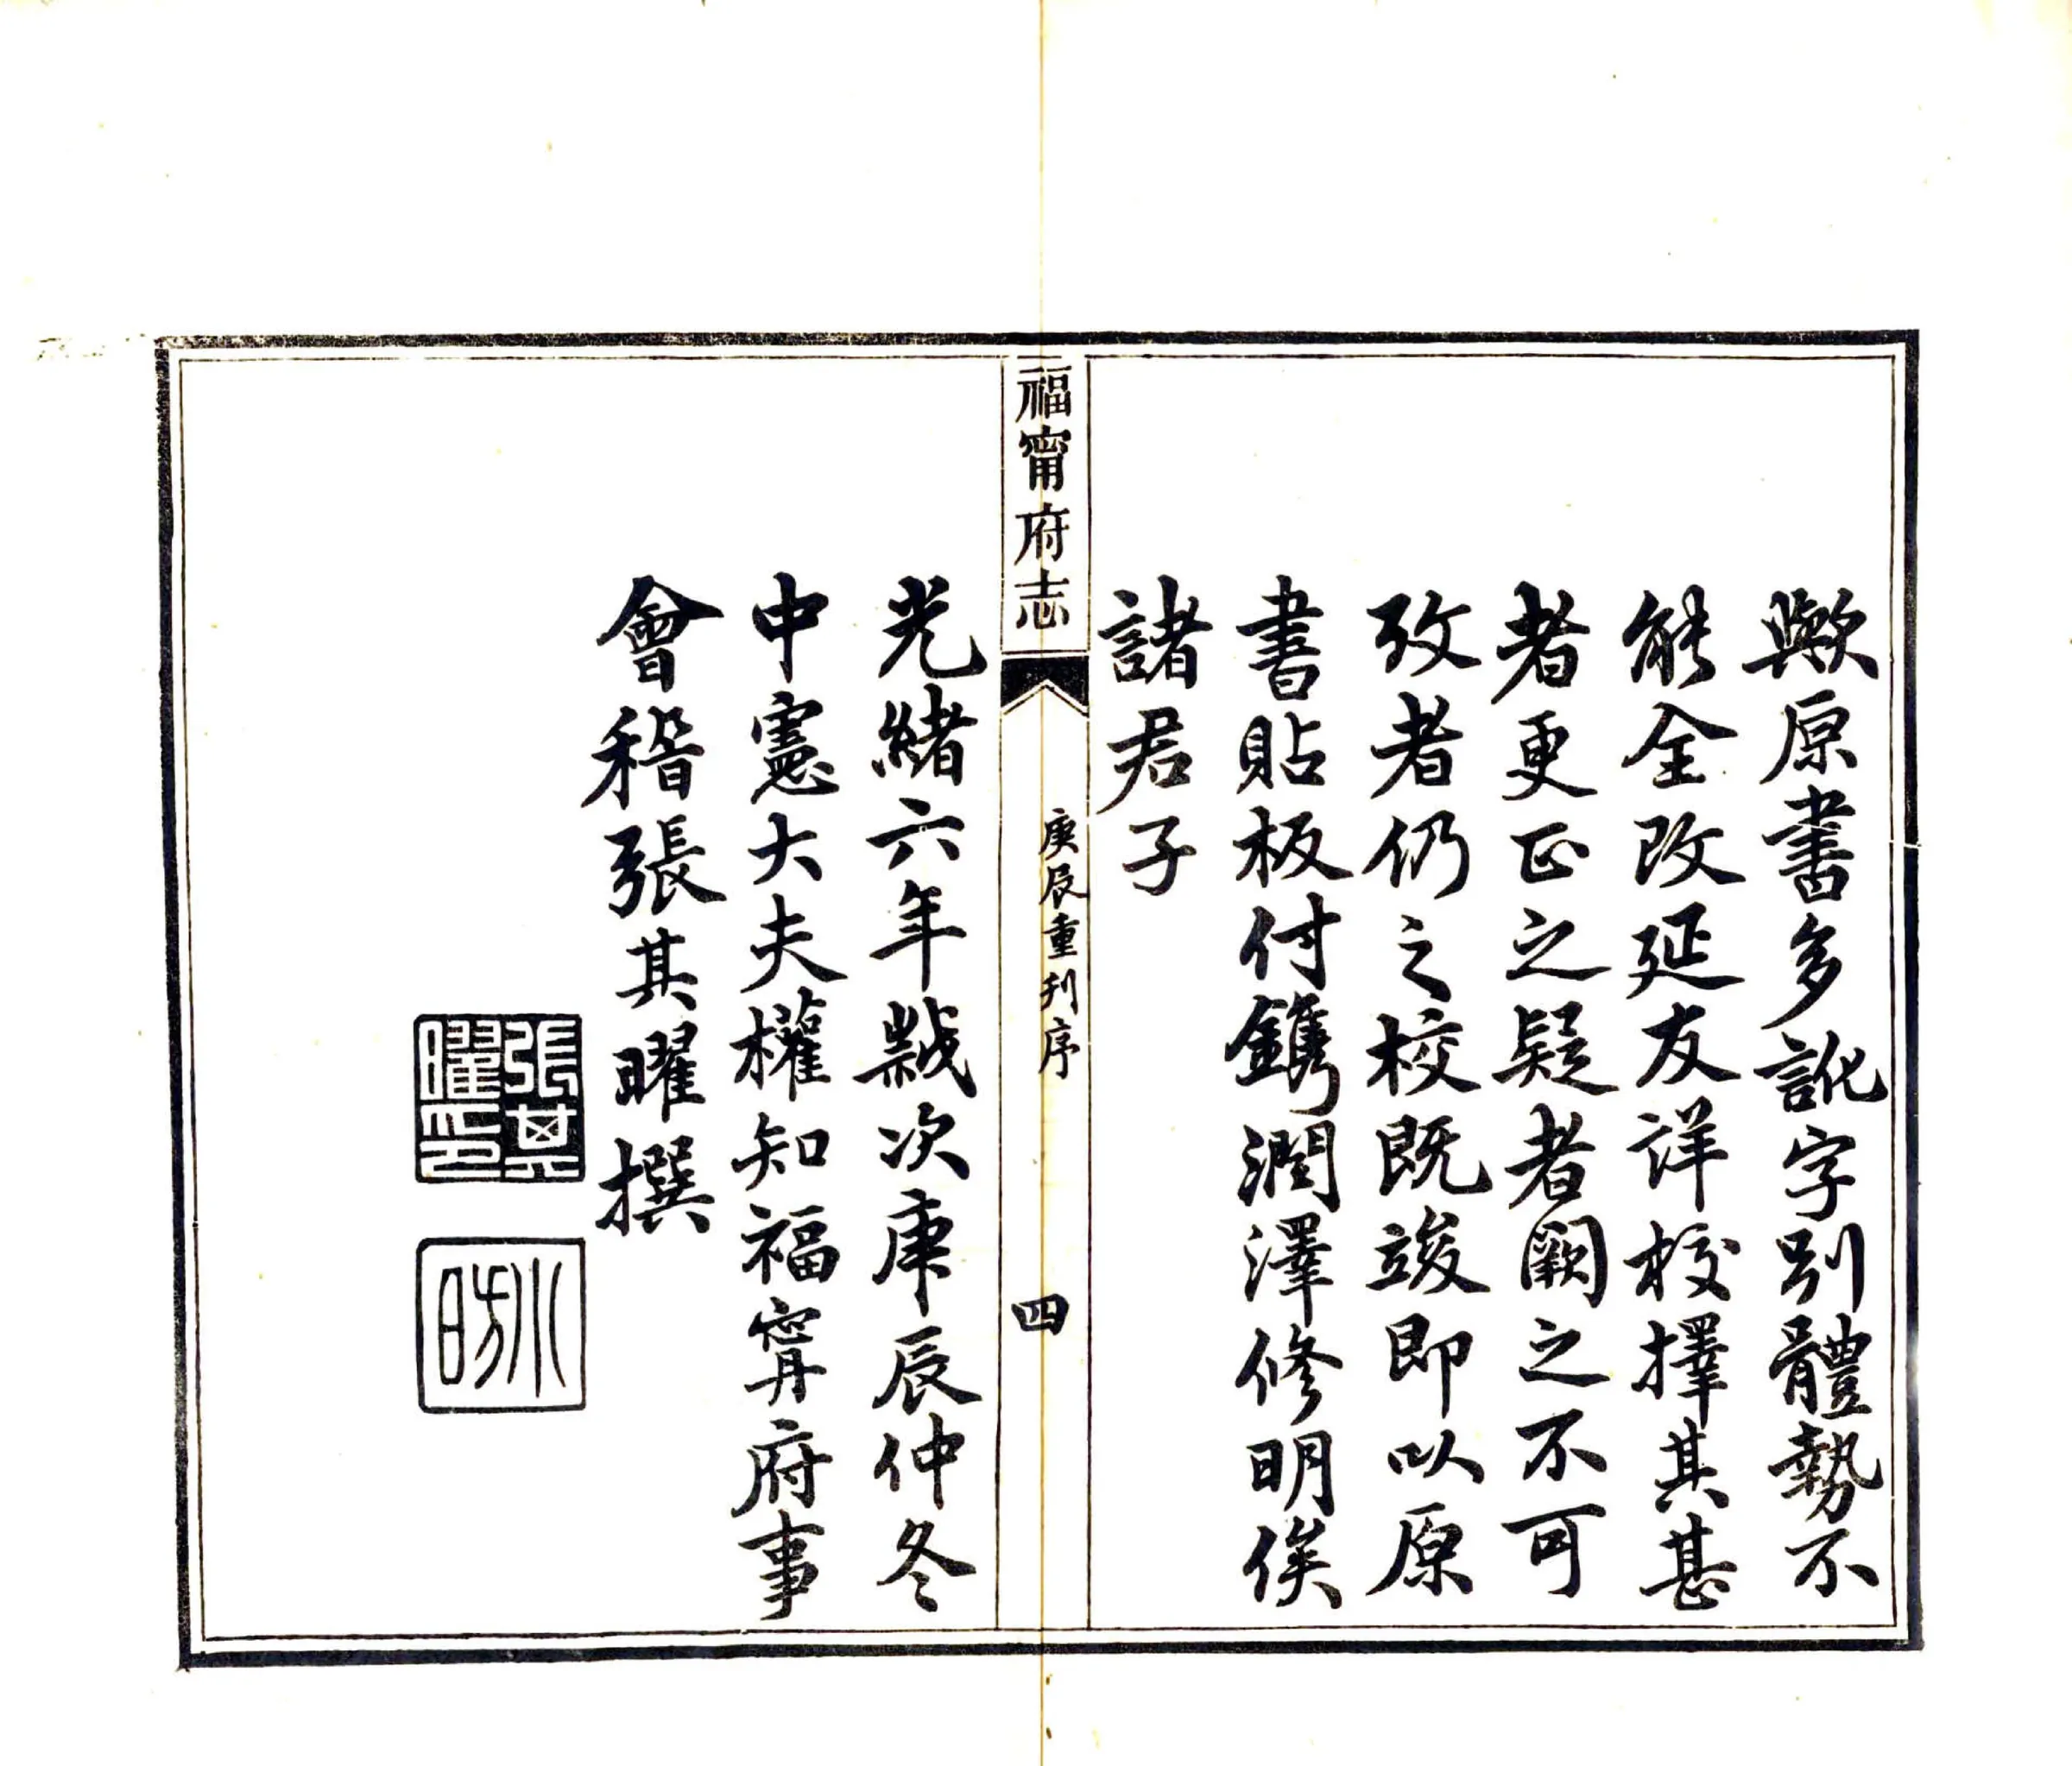 歟原書多訛字別體勢不
能全改延友詳校擇其甚
者更正之疑者闕之不可
攷者仍之校既竣即以原
書貼板付鐫潤澤修明俟
諸君子
福甯府志
庚辰重刊序
四
光緒六年歲次庚辰仲冬
中憲大夫權知福寗府事
會稽張其曜撰
張其
曜印